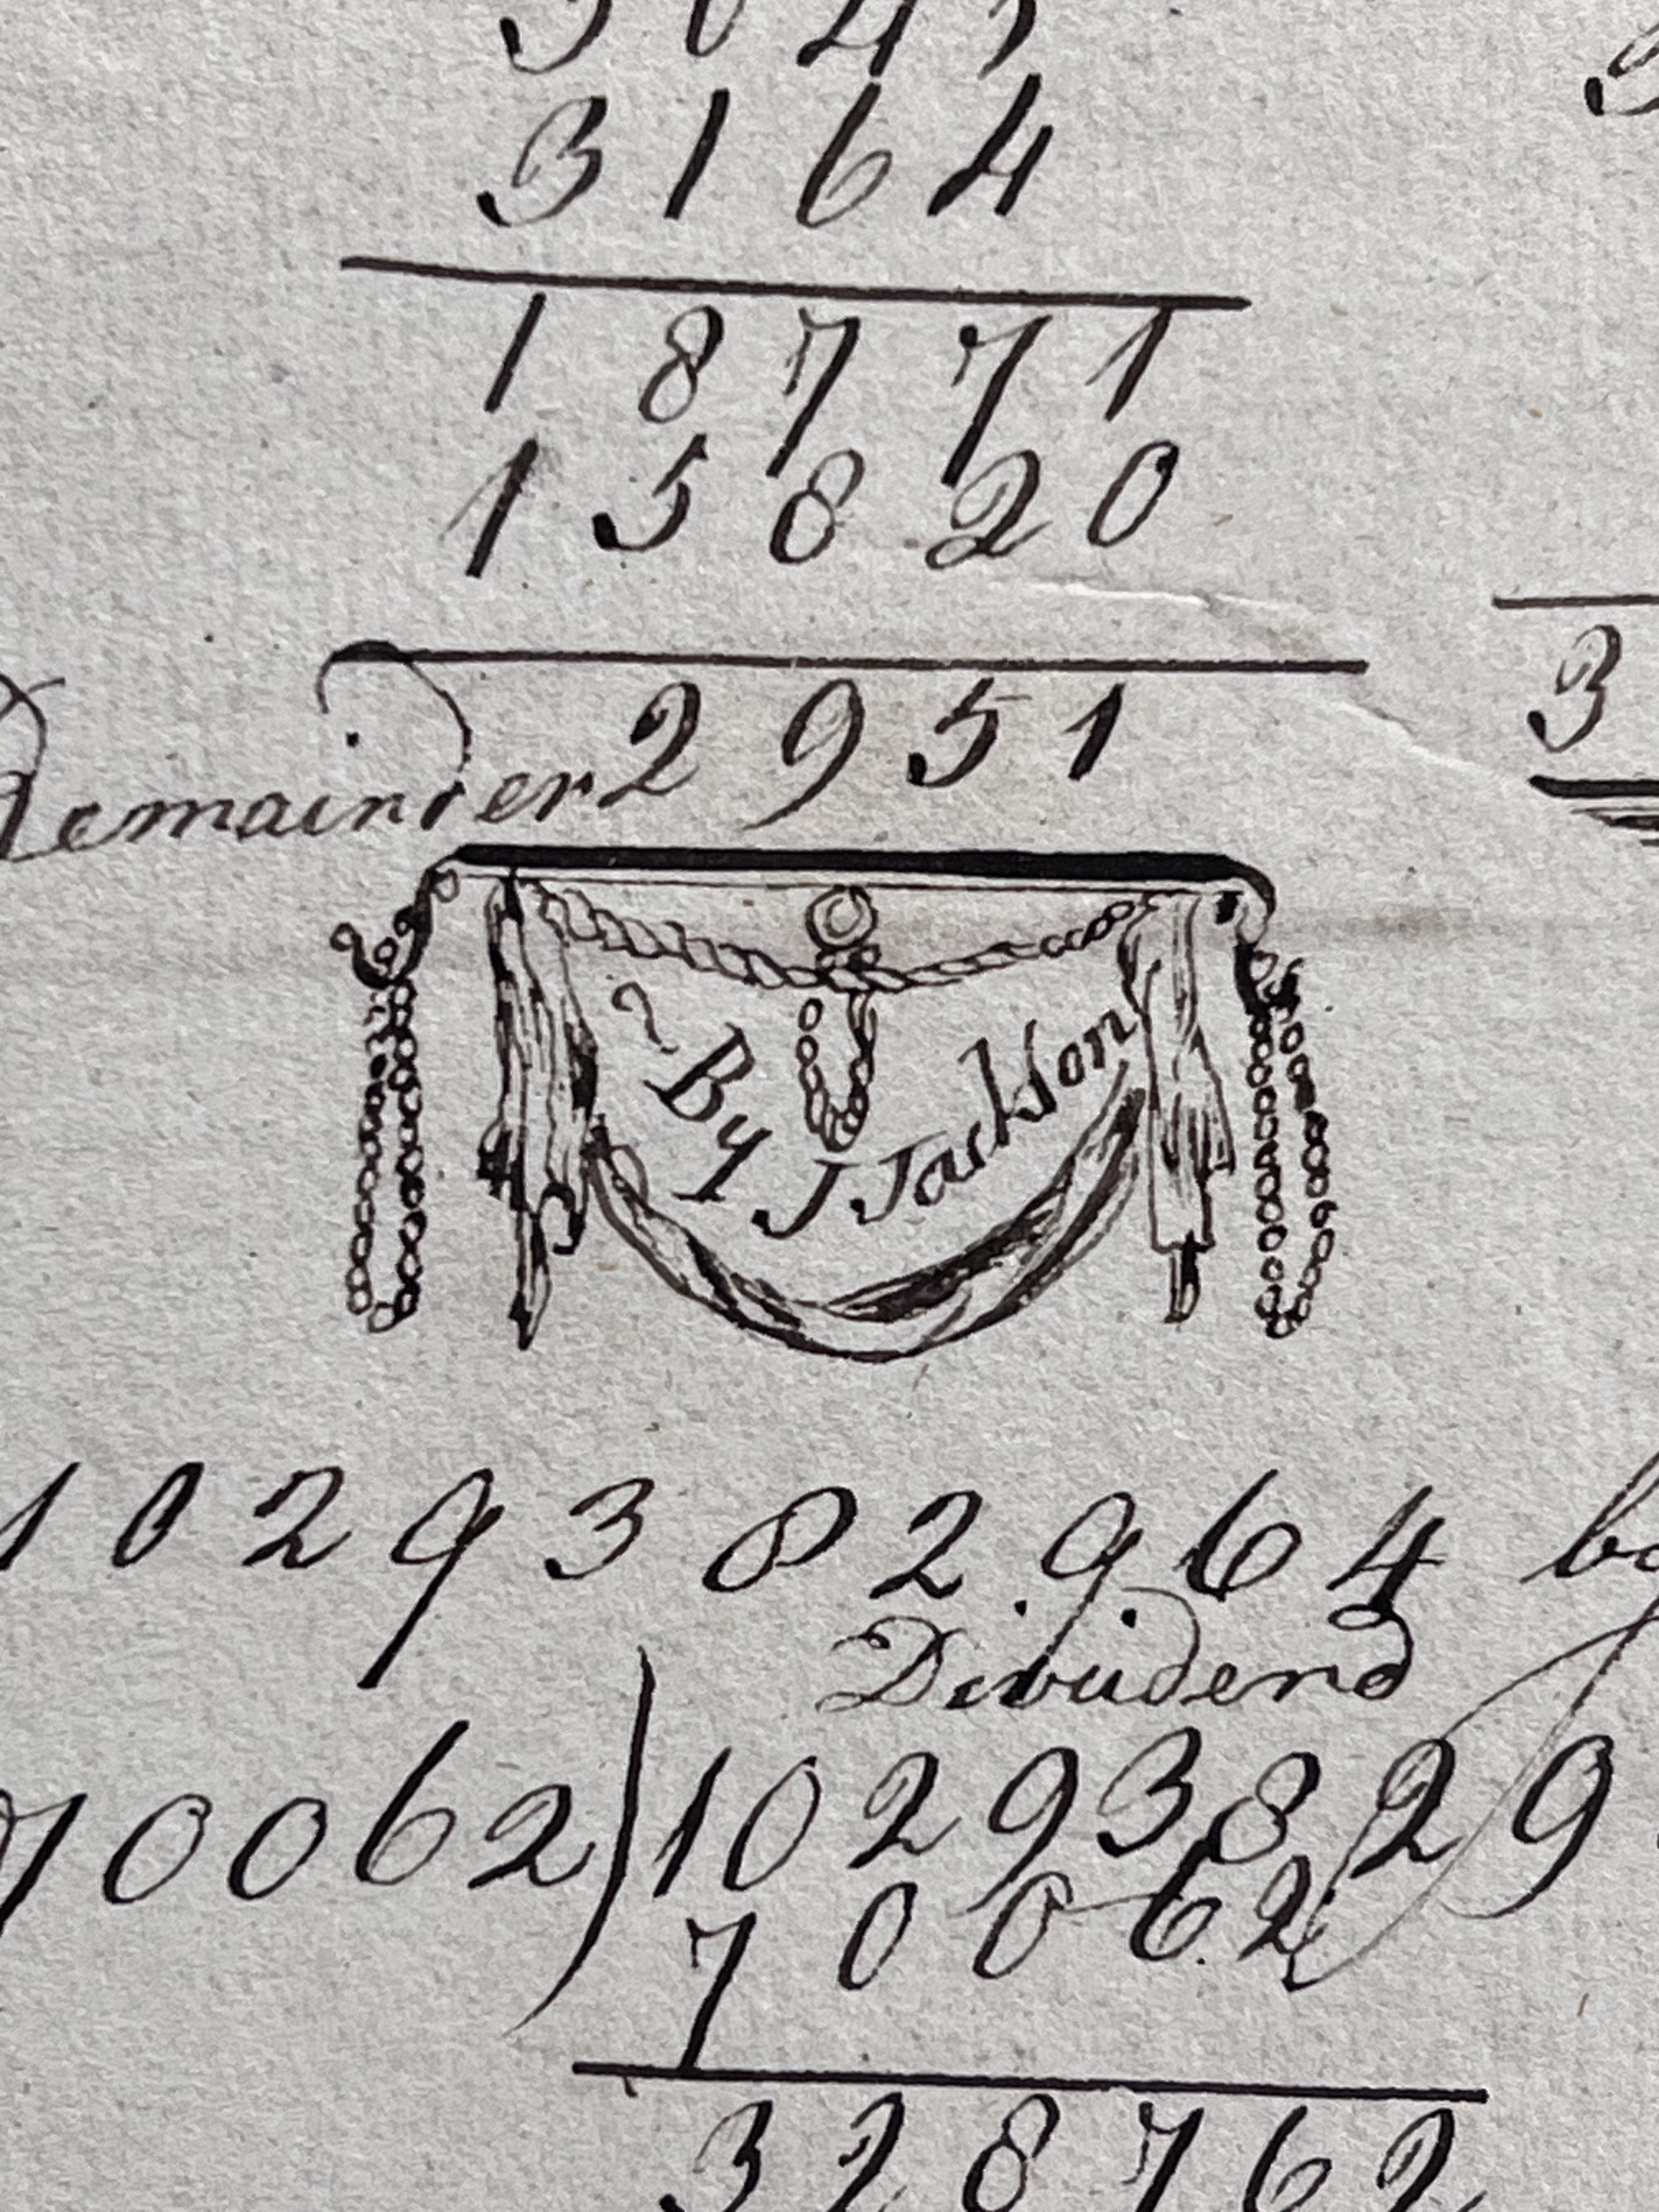 3164
18771
15820
3
Remainder 2951
By J Jackson
1029382964 by
Dividend
70062)10293829
70062
328762